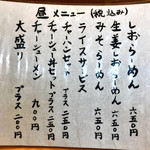 昼メニュー(税込み)
しおらーめん 六五〇円
生姜しおらーめん 六五〇円
みそらーめん 六五〇円
ライスサービス
チャーハンセット プラス 二五〇円
チャーシュー丼セット プラス 二五〇円
チャーシューメン 九〇〇円
大盛り プラス 二〇〇円